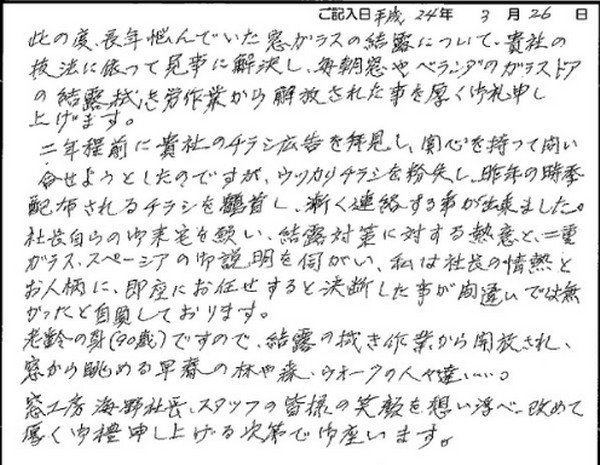 ご記入日 平成 24年 3月 26日
此の度、長年悩んでいた窓ガラスの結露について、貴社の
技法に依って見事に解決し、毎朝窓やベランダのガラスドア
の結露拭き労作業から解放された事を厚く御礼申し
上げます。
二年程前に貴社のチラシ広告を拝見し、関心を持って問い
合せようとしたのですが、ウッカリチラシを紛失し、昨年の時季
配布されるチラシを鶴首し、漸く連絡する事が出来ました。
社長自らの御来宅を願い、結露対策に対する熱意と、二重
ガラス、スペーシアの御説明を伺がい、私は社長の情熱と
お人柄に、即座にお任せすると決断した事が間違いでは無
かったと自負しております。
老齢の身(90歳)ですので、結露の拭き作業から開放され、
窓から眺める早春の林や森、ウォークの人々達……。
窓工房 海野社長、スタッフの皆様の笑顔を想い浮べ、改めて
厚く御禮申し上げる次第で御座います。